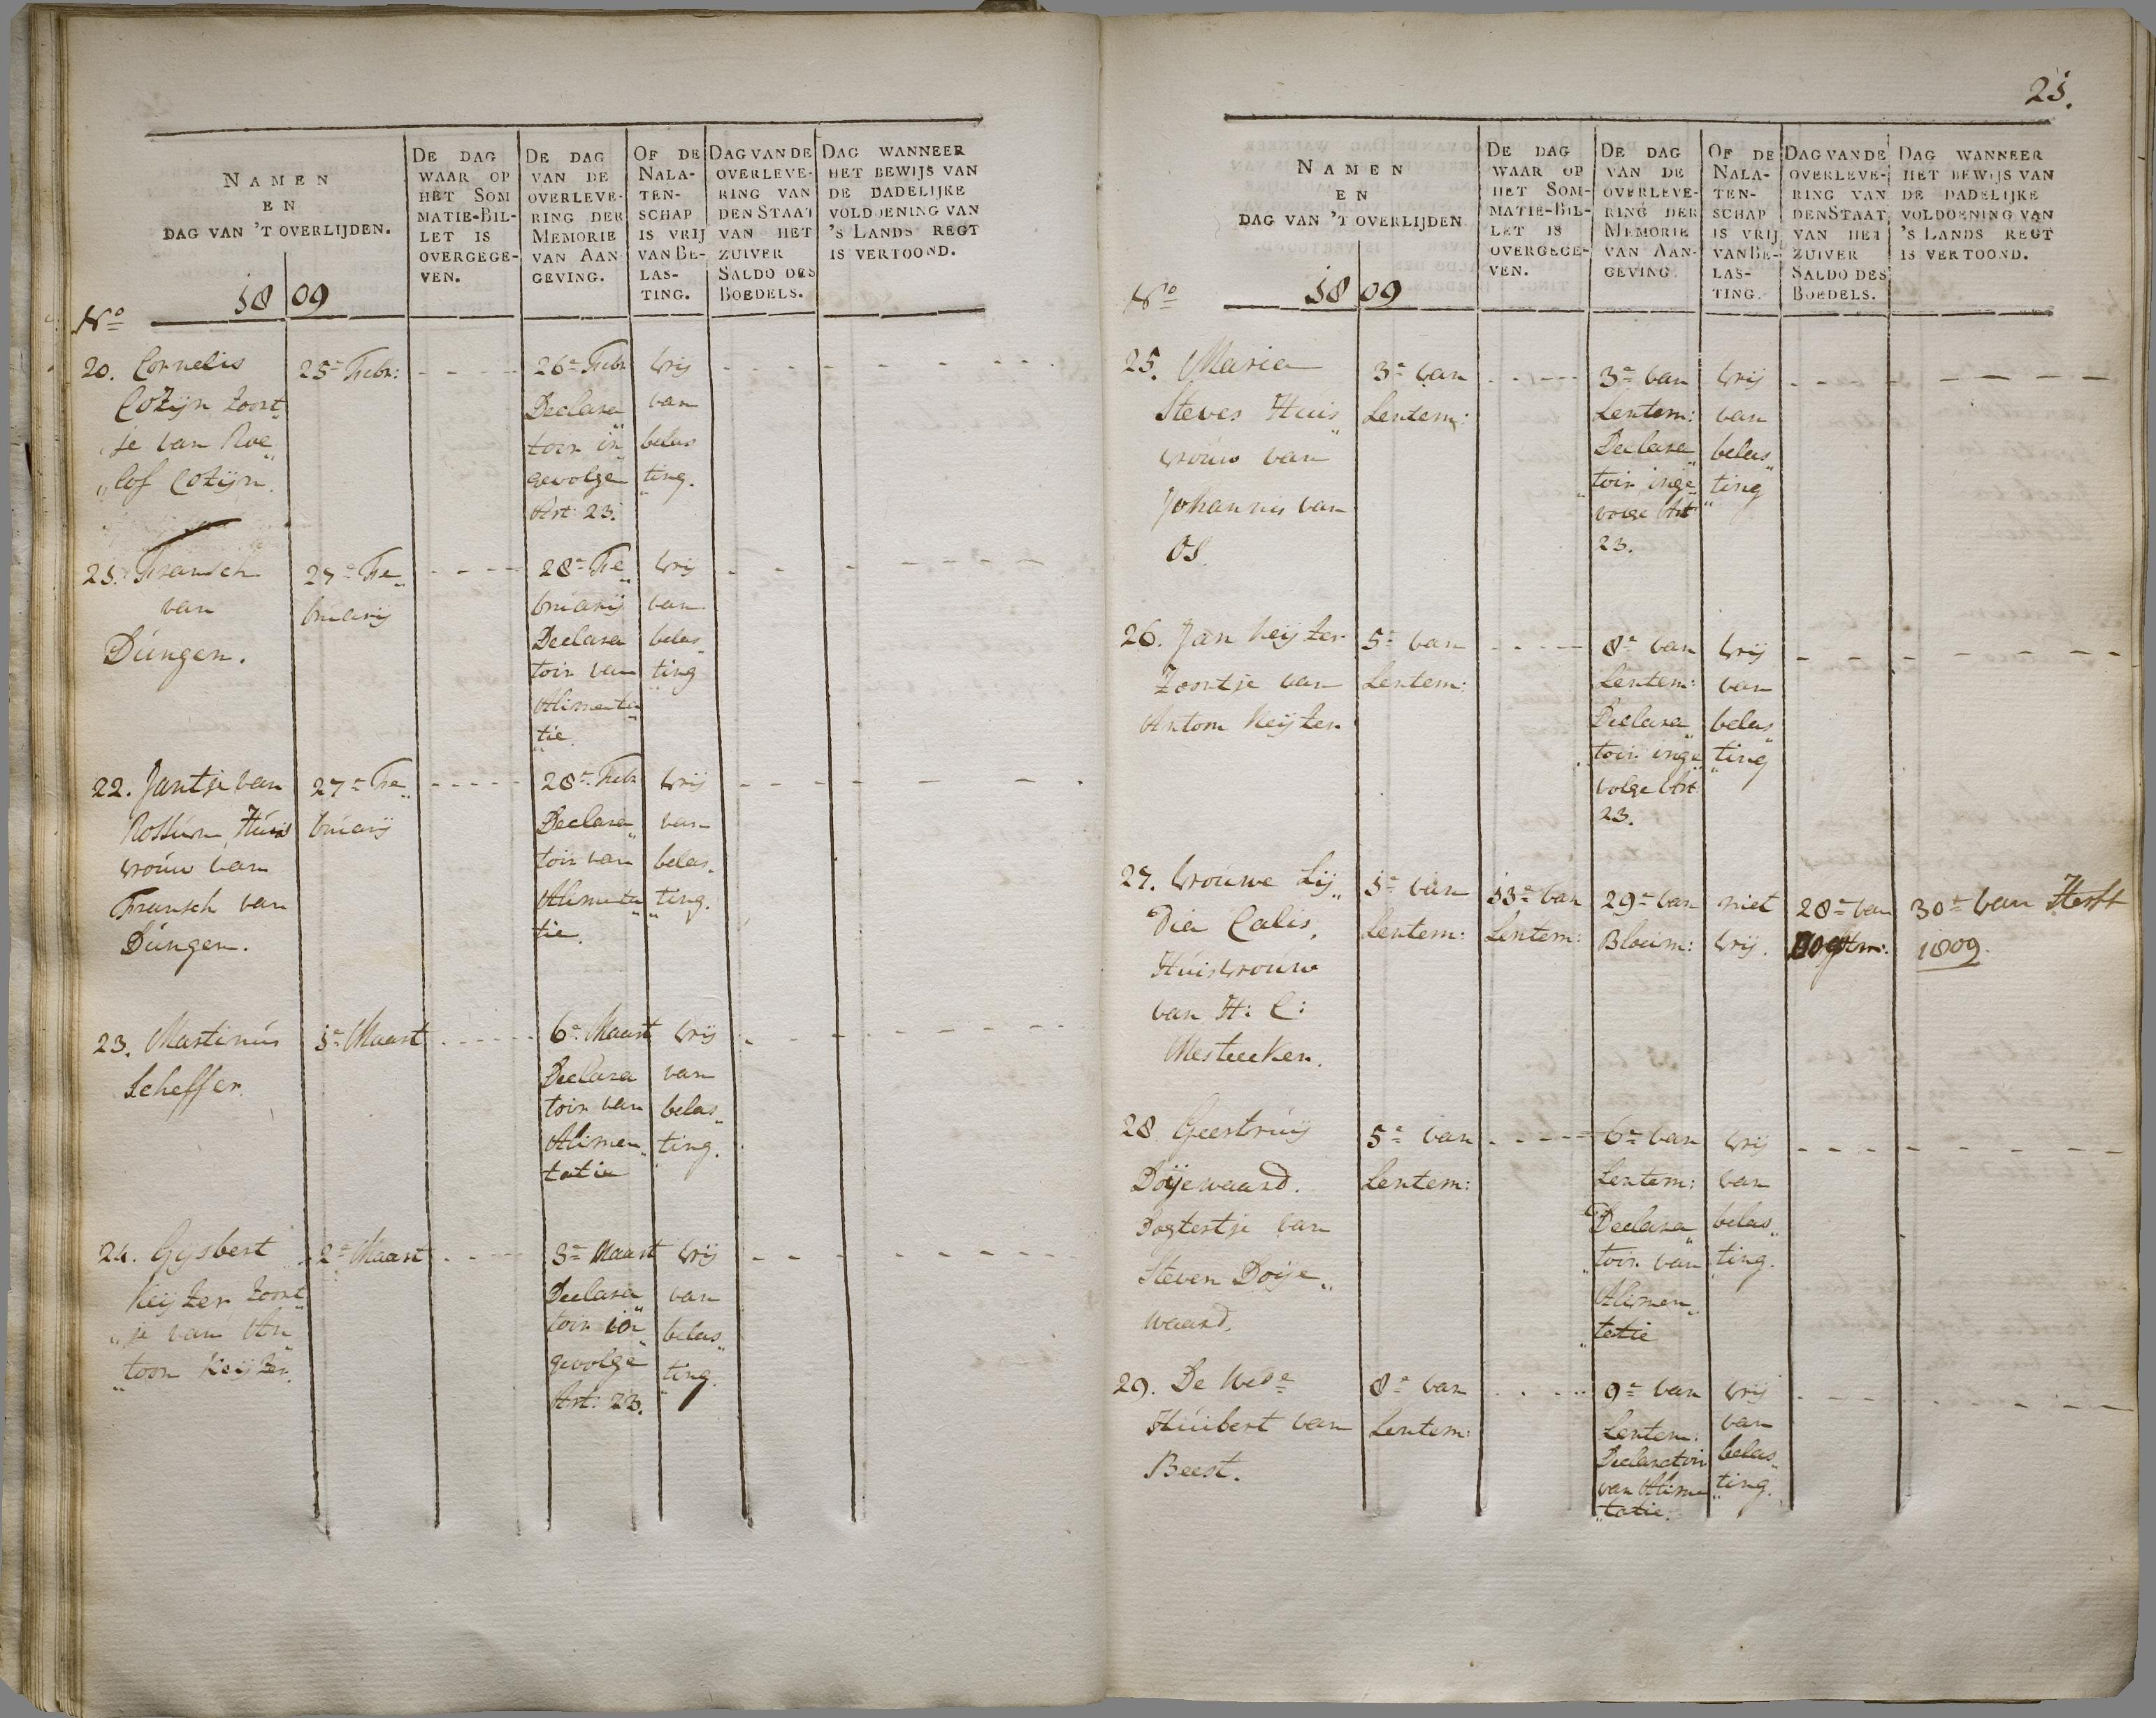 21.
NAMEN
EN
DAG VAN 'T OVERLIJDEN.
DE DAG
WAAR OP
HET SOM
MATIE-BIL-
LET IS
OVERGEGE-
VEN.
DE DAG
VAN DE
OVERLEVE-
RING DER
MEMORIE
VAN AAN
GEVING.
OF DE
NALA-
TEN-
SCHAP
IS VRIJ
VAN BE-
LAS-
TING.
DAG VAN DE
OVERLEVE-
RING VAN
DEN STAAT
VAN HET
ZUIVER
SALDO DES
BOEDELS.
DAG WANNEER
HET BEWIJS VAN
DE DADELIJKE
VOLDOENING VAN
'S LANDS REGT
IS VERTOOND.
No
1809
20. Cornelis
Cozijn zoont
je van Roe„
„lof Cozijn.
25e Febr:
26e Febr
Declara„
toir in
gevolge
Art: 23.
Vrij
van
belas
„ting.
21. Fransch
van
Dúngen.
27e Fe„
bruarij
28e Fe„
bruarij
Declara
toir van
Alimenta„
tie.
Vrij
van
belas„
ting
22. Jantje van
Rossúm Húis
vroúw van
Fransch van
Dúngen.
27e Fe„
bruarij
28e Febr
Declara„
toir van
Alimenta„
tie.
Vrij
van
belas„
„ting.
23. Martinús
Scheffer.
1e Maart
6e Maart
Declara
toir van
Alimen„
tatie
Vrij
van
belas„
ting.
24. Gijsbert
Keijzer zoont
„je van An
„toon Keijzer.
2e Maart
3e Maart
Declara„
toir in
gevolge
Art: 23.
Vrij
van
belas„
„ting.
NAMEN
EN
DAG VAN 'T OVERLIJDEN
DE DAG
WAAR OP
HET SOM-
MATIE-BIL-
LET IS
OVERGEGE-
VEN.
DE DAG
VAN DE
OVERLEVE-
RING DER
MEMORIE
VAN AAN-
GEVING.
OF DE
NALA-
TEN-
SCHAP
IS VRIJ
VAN BE-
LAS-
TING.
DAG VAN DE
OVERLEVE-
RING VAN
DEN STAAT
VAN HET
ZUIVER
SALDO DES
BOEDELS.
DAG WANNEER
HET BEWIJS VAN
DE DADELIJKE
VOLDOENING VAN
'S LANDS REGT
IS VERTOOND.
No
1809
25. Maria
Steves Húis„
vroúw van
Johannis van
Os.
3e van
Lentem:
3e van
Lentem:
Declara„
„toir inge„
volge Art
23.
Vrij
van
belas„
„ting
26. Jan Keijzer
Zoontje van
Antoon Keijzer.
5e van
Lentem:
8e van
Lentem:
Declara„
„toir inge„
volge Art
23.
Vrij
van
belas„
„ting
27. Vroúwe Lij„
Dia Calis,
Húisvroúw
van H: C:
1e van
Lentem:
13e van
Lentem:
29e van
Bloeim:
niet
Vrij.
28e van
Oogstm:
30e van Herfst
1809.
28. Geertrúij
Doijewaard.
Dogtertje van
Steven Doije„
waard.
5e van
Lentem:
6e van
Lentem:
Declara„
„toir van
Alimen„
„tatie
Vrij
van
belas„
„ting.
29. De Wede
Húibert van
Beest.
8e van
Lentem:
9e van
Lentem:
Declaratoir
van Alimen
„tatie.
Vrij
van
belas„
„ting.